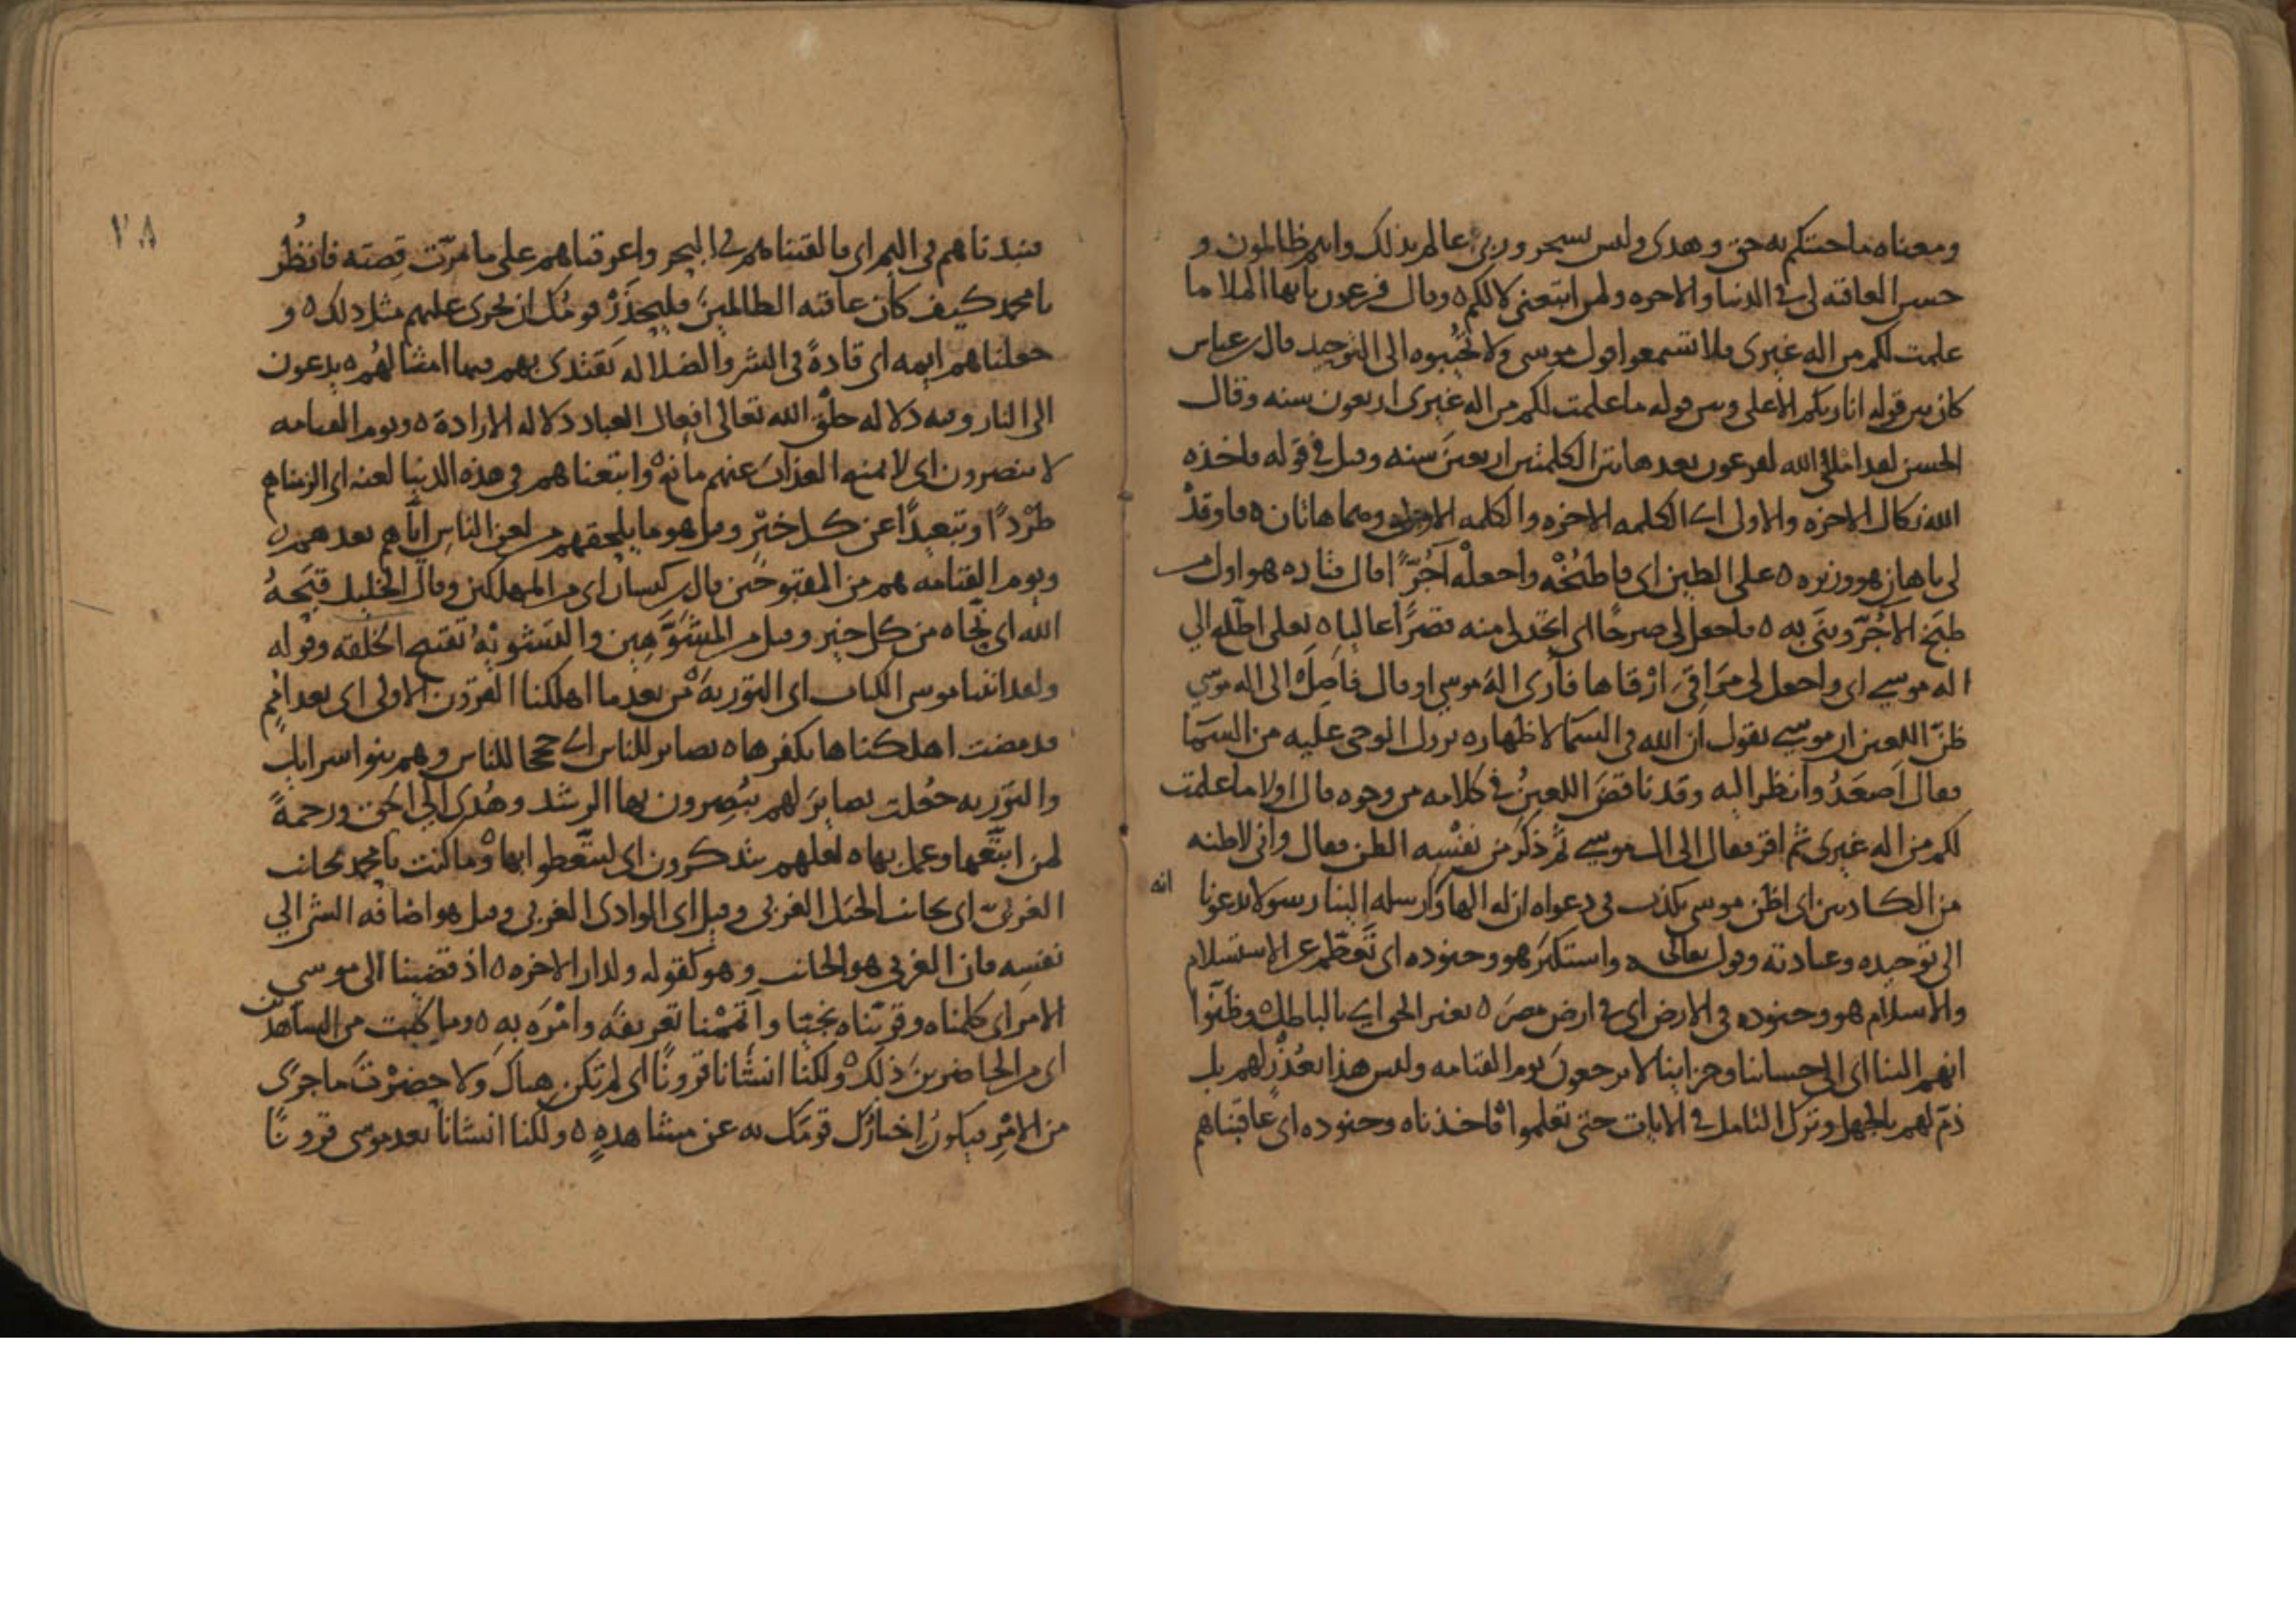 ومعناه ما جئتكم به حق وهدى وليس بسحر وربي عالم بذلك وانهم ظالمون و
حسن العاقبه لي في الدنيا والاخره ولمن اتبعني لا لكم ه وقال فرعون يا يها الملا ما
علمت لكم من اله غيري فلا تستمعوا قول موسى ولا تجيبوه الى التوحيد قال ابن عباس
كان بين قوله انا ربكم الاعلى وبين قوله ما علمت لكم من اله غيري اربعون سنه وقال
الحسن لقد املى الله لفرعون بعد هاتين الكلمتين اربعين سنه وقيل في قوله فاخذه
الله نكال الاخره والاولى اي الكلمه الاخره والكلمه الاولى وهما هاتان ه فاوقد
لي يا هامان هو وزيره ه على الطين اي فاطبخه واجعله آجرّا قال قتاده هو اول من
طبخ الآجرّ وبنى به ه فاجعل لي صرحا اي اتخذ لي منه قصرًا عاليا ه لعلي اطلع الي
اله موسى اي واجعل لي مراقي ارقاها فأرى اله موسى او قال فاصل الى اله موسى
ظنّ اللعين ان موسى يقول ان الله في السما لاظهاره نزول الوحي عليه من السما
فقال اصعد وانظر اليه وقد ناقض اللعين في كلامه من وجوه قال اولا ما علمت
لكم من اله غيري ثم اقر فقال الى اله موسى ثم ذكر من نفسه الظن فقال واني لاظنه
من الكاذبين اي اظن موسى يكذب في دعواه ان له الها وانه ارسله الينا رسولا يدعونا
الى توحيده وعبادته وقول تعالى ه واستكبر هو وجنوده اي تعظم عن الاستسلام
والاسلام هو وجنوده في الارض اي في ارض مصر ه بغير الحق اي بالباطل ه وظنّوا
انهم الينا اي الى حسابنا وجزاينا لا يرجعون يوم القيامه وليس هذا بعذر لهم بل
ذمّ لهم بالجهل وترك التامل في الايات حتى يعلموا ه فاخذناه وجنوده اي عاقبناهم
٧٨
فنبذناهم في اليم اي فالقيناهم في البحر واغرقناهم على ما مرّت قصته فانظُر
يا محمد كيف كان عاقبه الظالمين فليحذر قومك ان يجري عليهم مثل ذلك ه و
جعلناهم ايمه اي قادةً في الشر والضلاله يقتدي بهم فيها امثالهم ه يدعون
الى النار وفيه دلاله خلق الله تعالى افعال العباد دلاله الارادة ه ويوم القيامه
لا ينصرون اي لا يمنع العذاب عنهم مانع ه واتبعناهم في هذه الدنيا لعنه اي الزمناهم
طردًا وتبعيدًا عن كل خيرٍ وقيل هو ما يلحقهم من لعن الناس اياهم بعدهم ه
ويوم القيامه هم من المقبوحين قال ابن كيسان اي من المهلكين وقال الخليل قبحه
الله اي نحّاه من كل خير وقيل من المشوّهين والتشويه تقبيح الخلقه وقوله
ولقد اتينا موسى الكتاب اي التوريه ه من بعد ما اهلكنا القرون الاولى اي بعد امم
قد مضت اهلكناها بكفرها ه بصاير للناس اي حججا للناس وهم بنوا اسرايل
والتوريه جُعلت بصاير لهم يبصرون بها الرشد وهُدى الى الحق ورحمةً
لمن اتبعها وعمل بها ه لعلهم يتذكرون اي ليتّعظوا بها ه وما كنت يا محمد بجانب
الغربي اي بجانب الجبل الغربي وقيل اي الوادي الغربي وقيل هو اضافه الشي الي
نفسه فان الغربي هو الجانب وهو كقوله ولدار الاخره ه اذ قضينا الى موسى
الامر اي كلمناه وقربناه نجيّا واتممنا تعريفه وامره به ه وما كنت من الشاهدين
اي من الحاضرين ذلك ه ولكنا انشانا قرونًا اي لم تكن هناك ولا حضرت ما جرى
من الامر فيكون اخبارك قومك به عن مشاهدةٍ ه ولكنا انشانا بعد موسى قرونًا